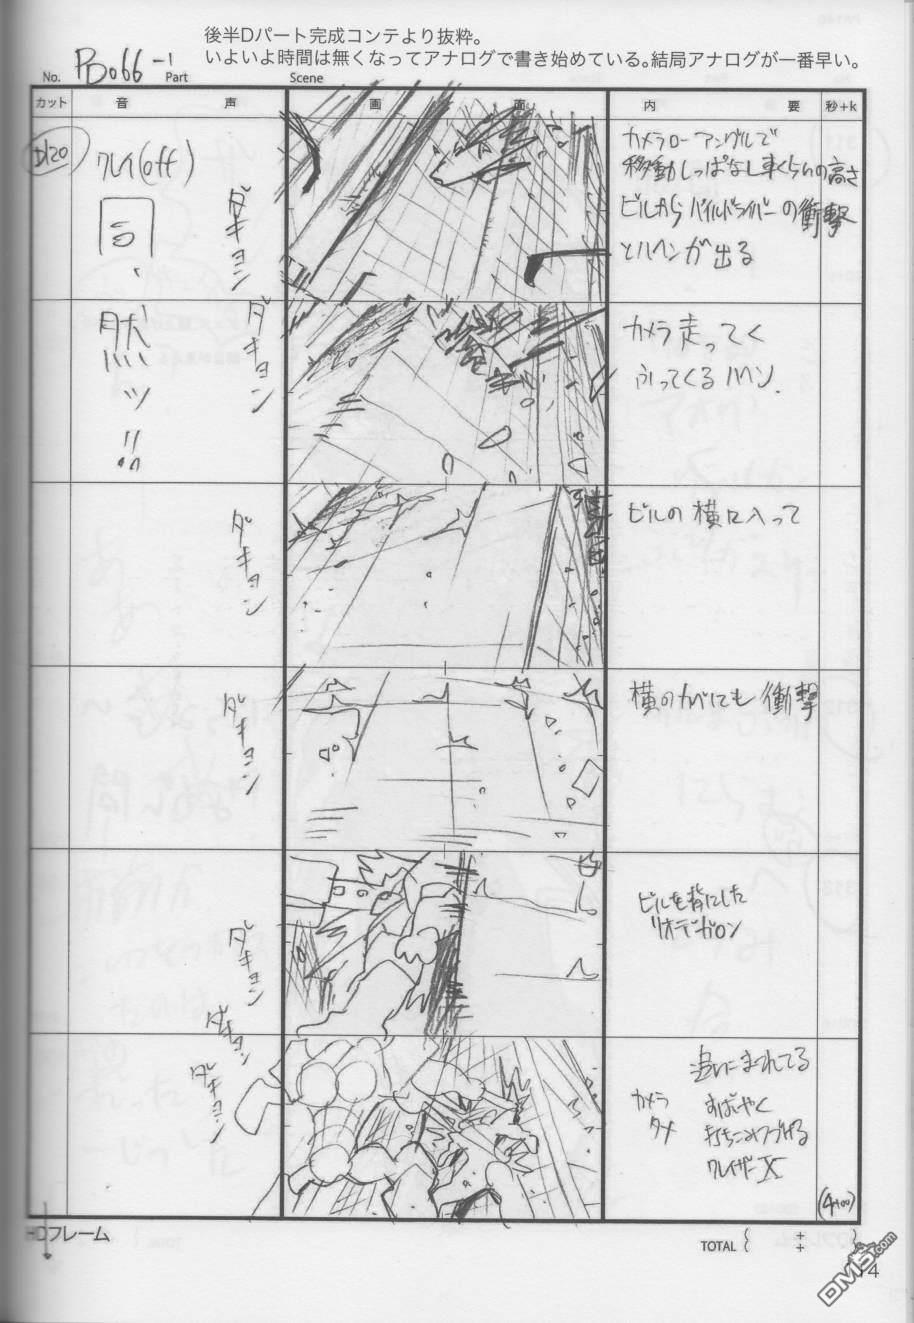 後半Dパート完成コンテより抜粋。
いよいよ時間は無くなってアナログで書き始めている。結局アナログが一番早い。
No. PB066-1 Part Scene
カット 音 声 画 面 内 要 秒+k
D120
クレイ(off)
ダキョン
カメラローアングルで
移動しっぱなし車くらいの高さ
ビルからパイルドライバーの衝撃
とハヘンが出る
ダキョン
カメラ走ってく
ふってくるハヘン
ダキョン
ビルの横に入って
ダキョン
横のカベにも衝撃
ダキョン
ビルを背にした
リオデガロン
ダキョン
ダキョン
カメラ
タメ
すばやく
打ちこみつづける
クレイザーX
(4+00)
HDフレーム
TOTAL ( + + )
14
DM5.com